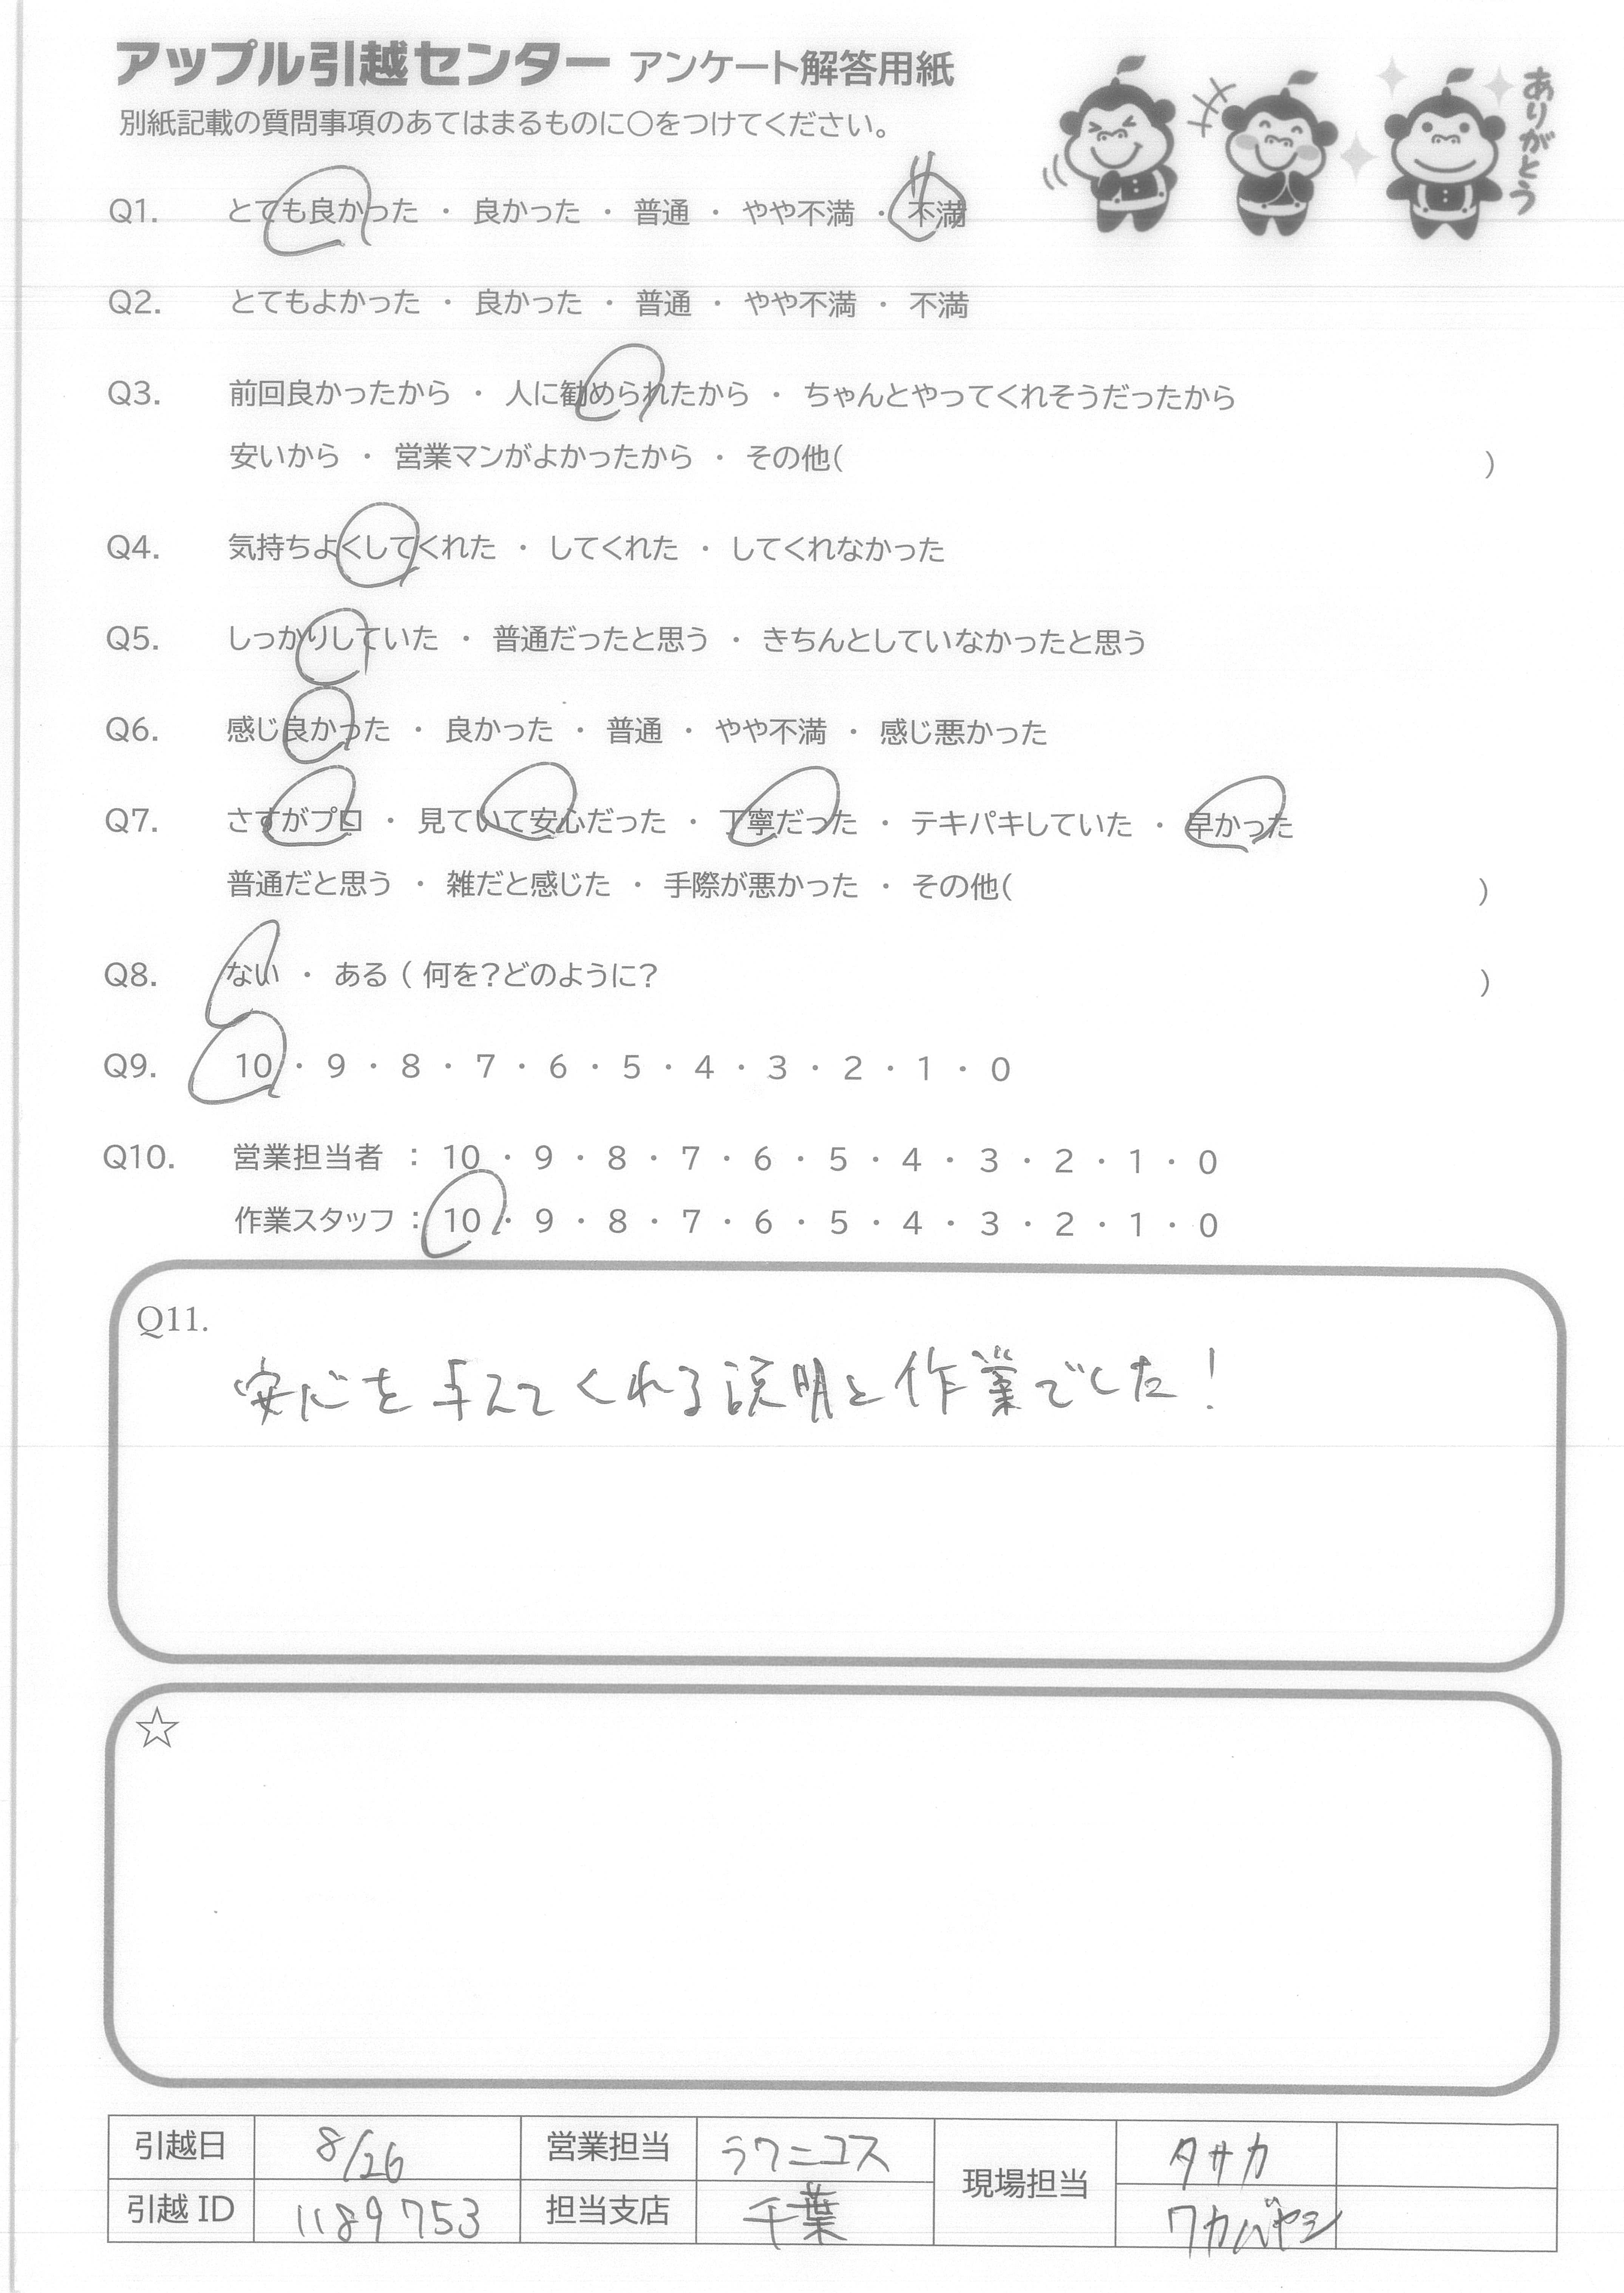 アップル引越センター アンケート解答用紙
別紙記載の質問事項のあてはまるものに○をつけてください。
ありがとう
Q1. とても良かった ・ 良かった ・ 普通 ・ やや不満 ・ 不満
Q2. とてもよかった ・ 良かった ・ 普通 ・ やや不満 ・ 不満
Q3. 前回良かったから ・ 人に勧められたから ・ ちゃんとやってくれそうだったから
安いから ・ 営業マンがよかったから ・ その他( )
Q4. 気持ちよくしてくれた ・ してくれた ・ してくれなかった
Q5. しっかりしていた ・ 普通だったと思う ・ きちんとしていなかったと思う
Q6. 感じ良かった ・ 良かった ・ 普通 ・ やや不満 ・ 感じ悪かった
Q7. さすがプロ ・ 見ていて安心だった ・ 丁寧だった ・ テキパキしていた ・ 早かった
普通だと思う ・ 雑だと感じた ・ 手際が悪かった ・ その他( )
Q8. ない ・ ある ( 何を?どのように? )
Q9. 10 ・ 9 ・ 8 ・ 7 ・ 6 ・ 5 ・ 4 ・ 3 ・ 2 ・ 1 ・ 0
Q10. 営業担当者 : 10 ・ 9 ・ 8 ・ 7 ・ 6 ・ 5 ・ 4 ・ 3 ・ 2 ・ 1 ・ 0
作業スタッフ : 10 ・ 9 ・ 8 ・ 7 ・ 6 ・ 5 ・ 4 ・ 3 ・ 2 ・ 1 ・ 0
Q11.
安心を与えてくれる説明と作業でした!
☆
引越日 8/26 営業担当 ラワニコス 現場担当 タサカ
引越 ID 1189753 担当支店 千葉 ワカバヤシ